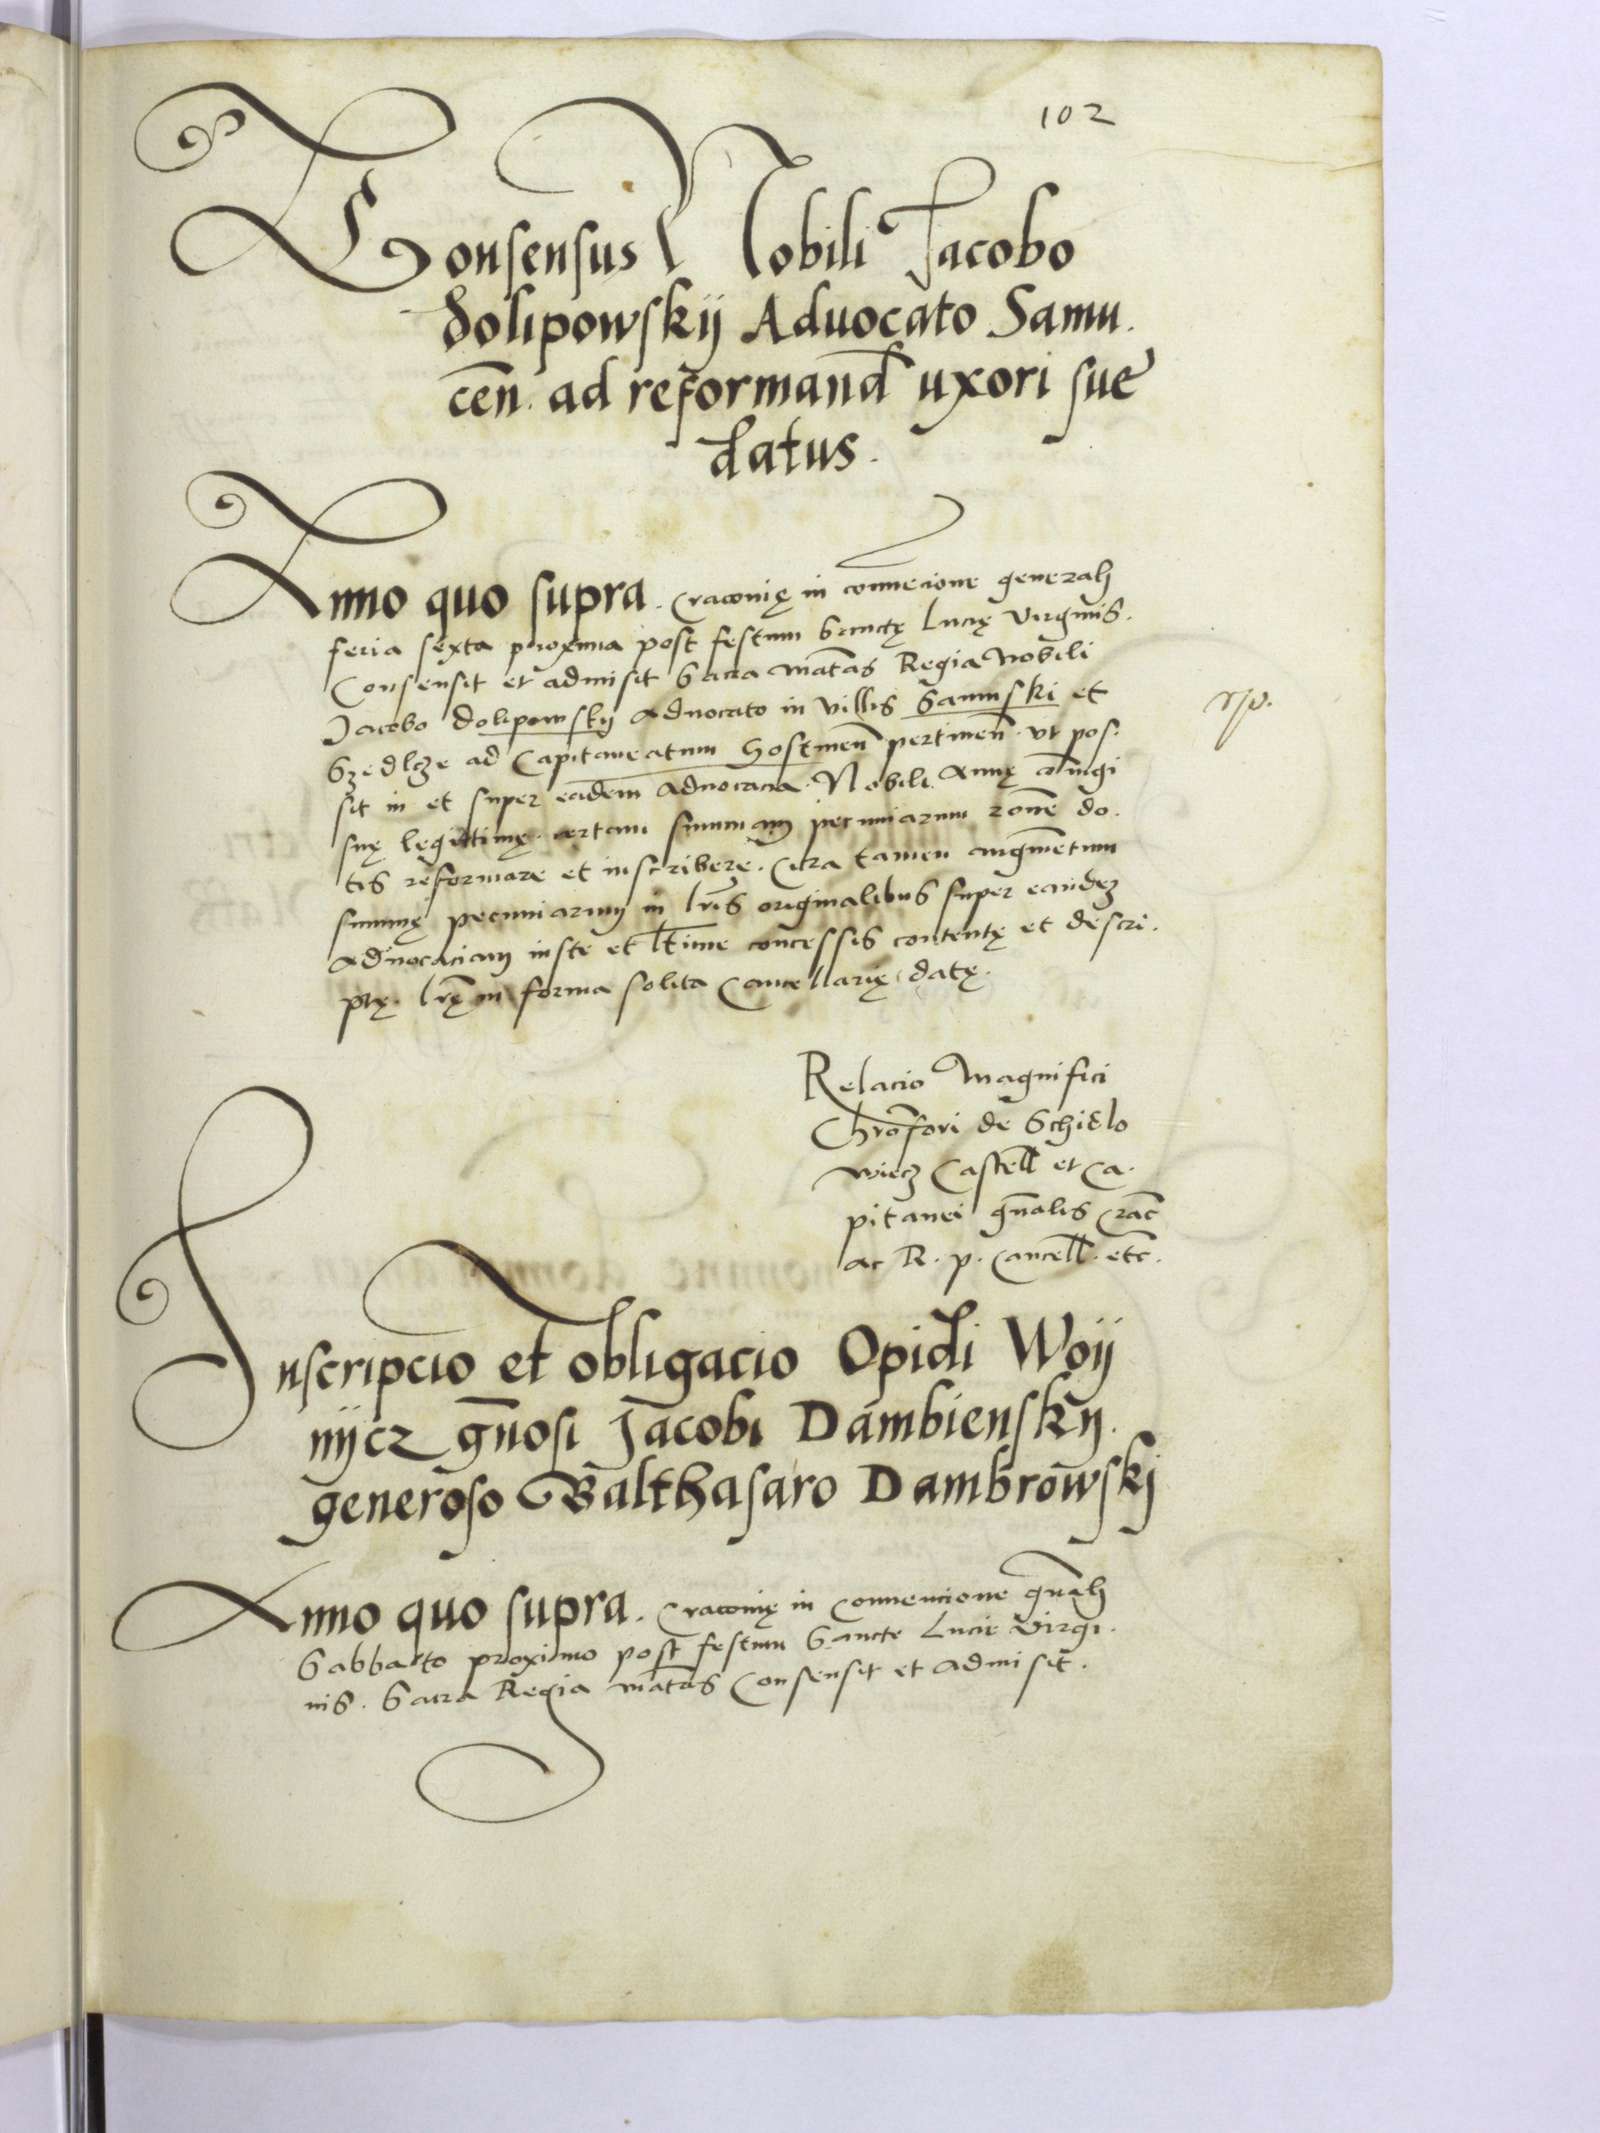 102
Consensus Nobili Jacobo
dolipowskij Aduocato Samu.
cen̄. ad reformand̄ uxori sue
datus.
Anno quo supra. Cracouię in conuencione generali
feria sexta proxima post festum Sanctę Lucię virginis.
Consensit et admisit Sacra Mat̄as Regia Nobili
Jacobo dolipowskij aduocato in villis Samuski et
Szedlcze ad Capitaneatum Hostinen̄ pertinen̄. vt pos.
sit in et super eadem aduocacia. Nobili Annę cōiugi
suę legittimę. certam summam pecuniarum rōne do.
tis reformare et inscribere. Citra tamen augmētum
summę pecuniarum in lr̄is originalibus super eandez
aduocaciam iuste et lt̄ime concessis contentę et descri.
ptę. lr̄ę in forma solita Cancellarię datę.
Relacio Magnifici
Chrōfori de Schidlo
wiecz Castell̄ et Ca.
pitanei gn̄alis Crac̄
ac R. p. Cancell̄. etc̄.
Inscripcio et obligacio Opidi Woij
nijcz gn̄osi Jacobi Dambienskij.
generoso Balthasaro Dambrowskj
Anno quo supra. Cracouię in Conuencione gn̄ali
Sabbatto proximo post festum Sancte Lucie Virgi.
nis. Sacra Regia mat̄as Consensit et admisit.